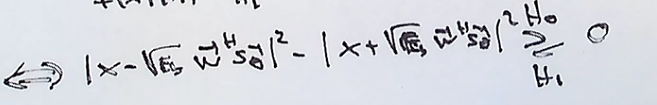 ⇔ |x-√E_s w⃗^H s⃗_θ|² - |x+√E_s w⃗^H s⃗_θ|² ≷^{H₀}_{H₁} 0